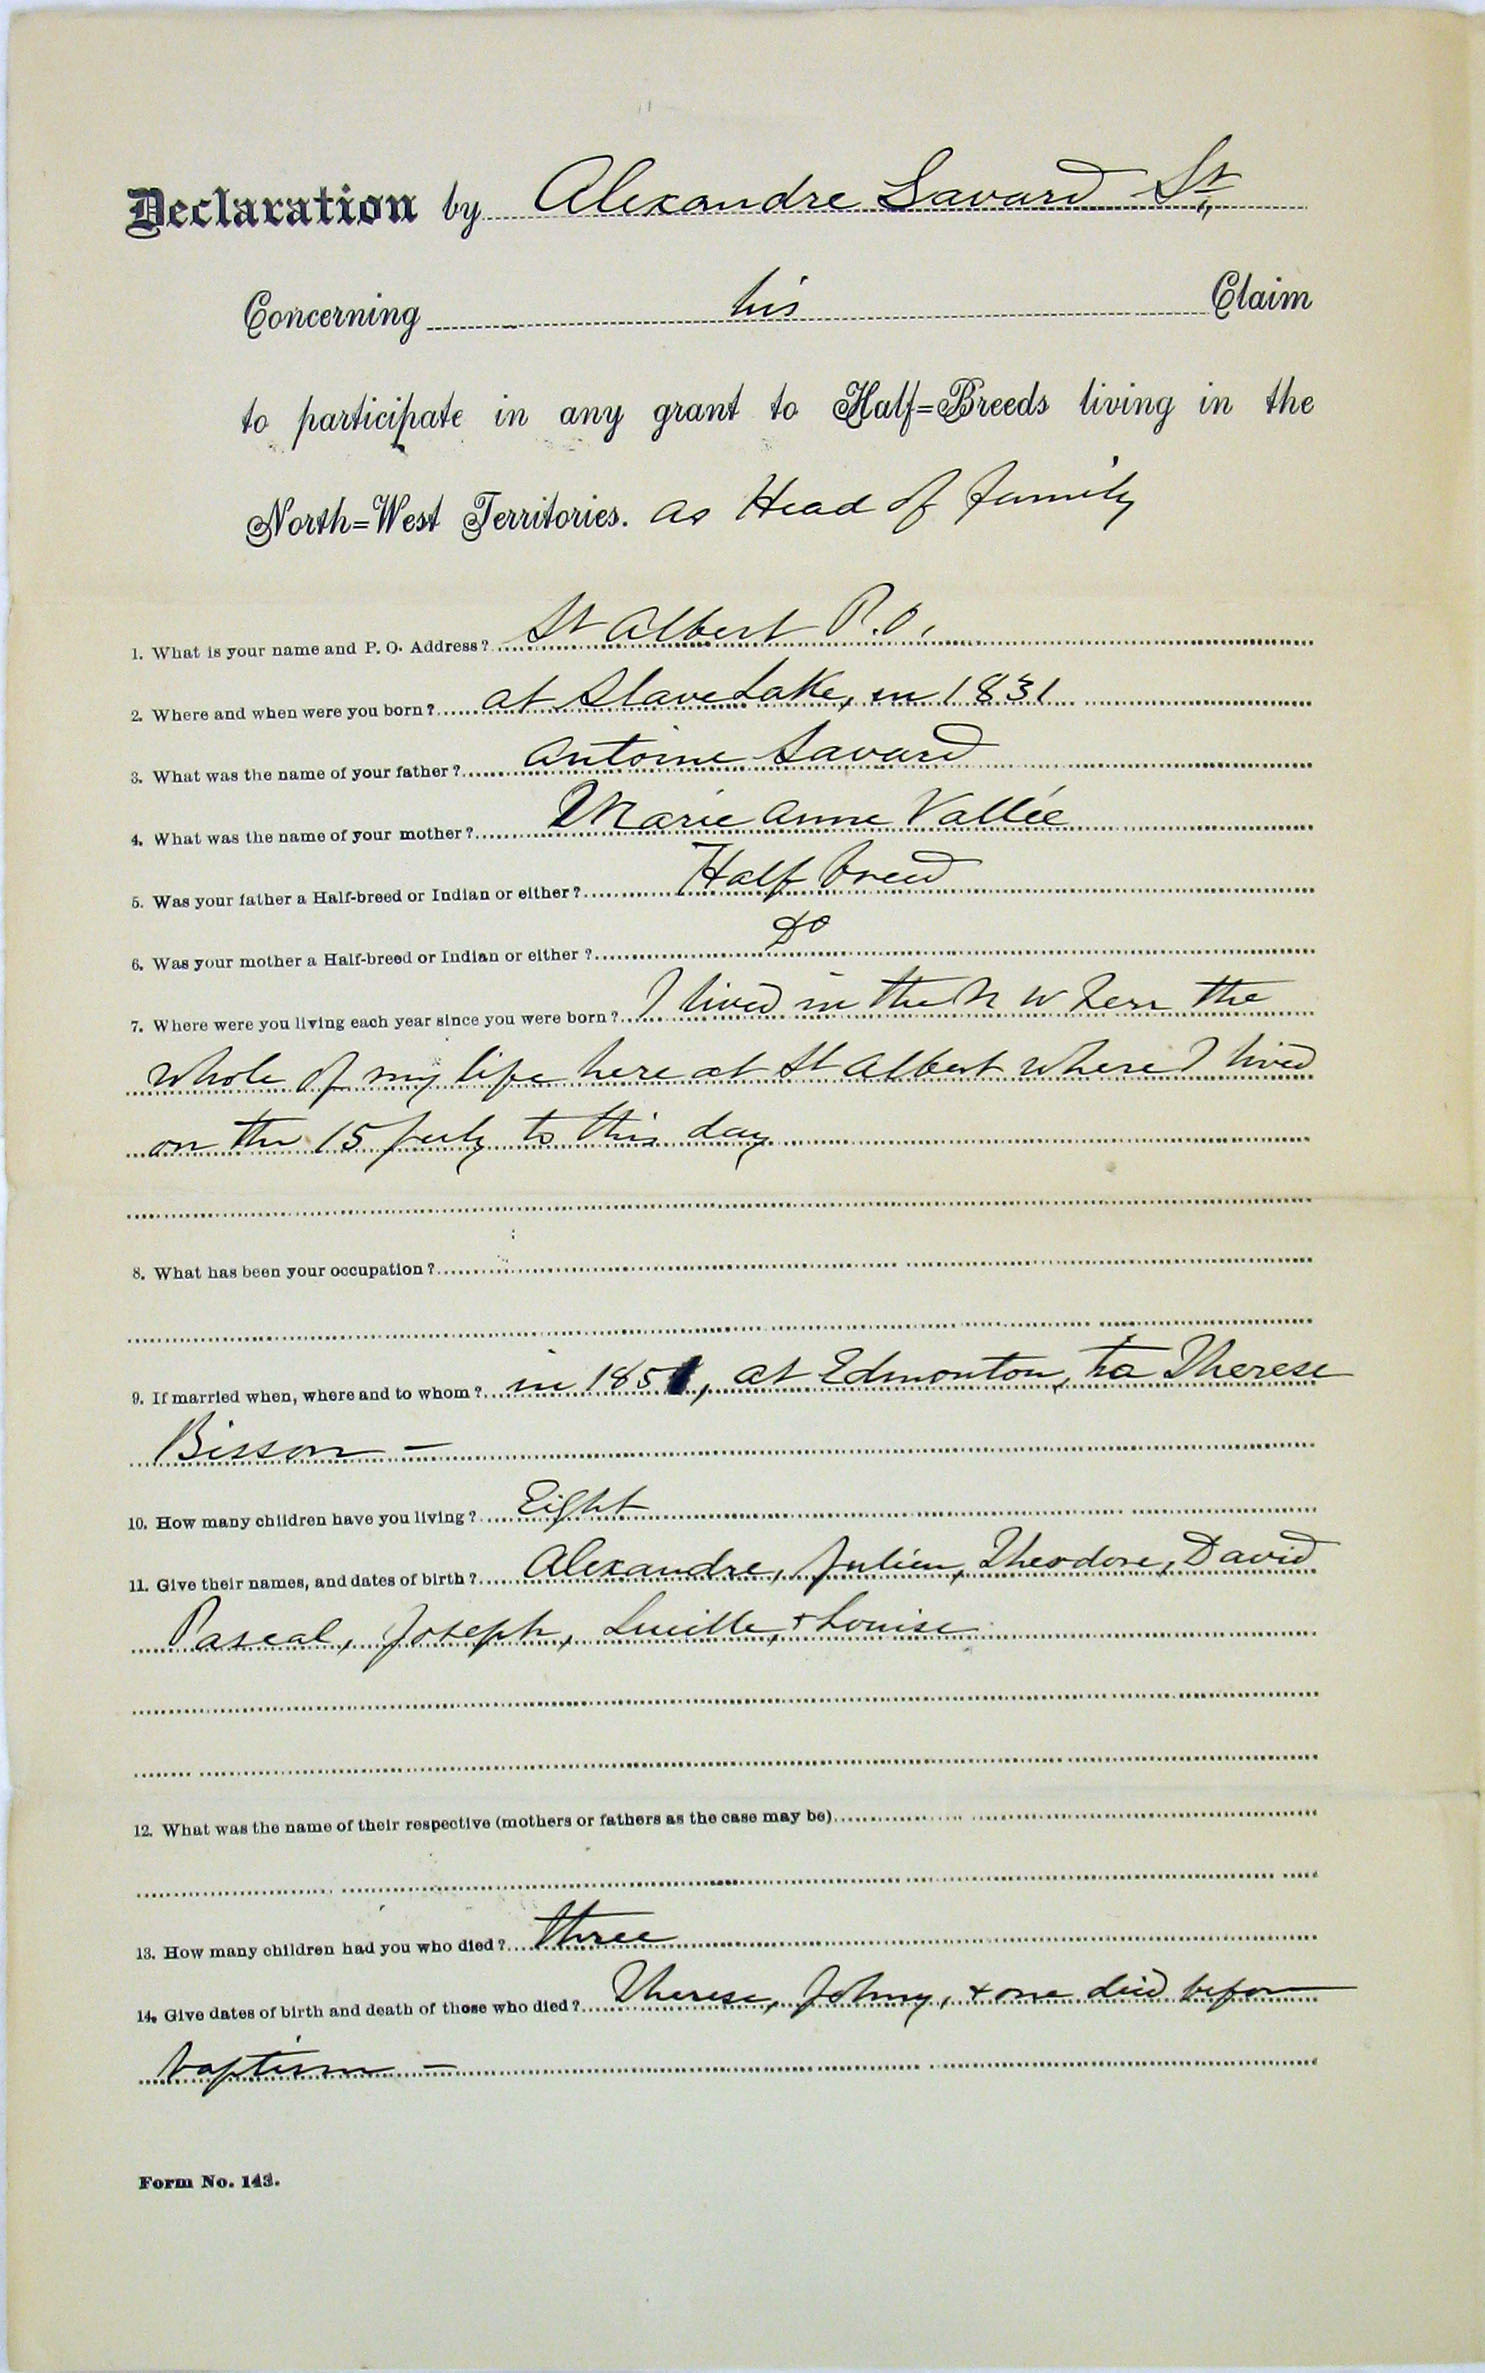 Declaration by Alexandre Savard Sr,
Concerning his Claim
to participate in any grant to Half=Breeds living in the
North=West Territories. as Head of family
1. What is your name and P. O. Address? St Albert P.O.
2. Where and when were you born? at Slave Lake, in 1831
3. What was the name of your father? Antoine Savard
4. What was the name of your mother? Marie Anne Vallée
5. Was your father a Half-breed or Indian or either? Half breed
6. Was your mother a Half-breed or Indian or either? Do
7. Where were you living each year since you were born? I lived in the N W Terr the
whole of my life here at St Albert where I lived
on the 15 July to this day
8. What has been your occupation?
9. If married when, where and to whom? in 1851, at Edmonton, to Therese
Bisson —
10. How many children have you living? Eight
11. Give their names, and dates of birth? Alexandre, Julien, Theodore, David
Pascal, Joseph, Lucille, + Louise
12. What was the name of their respective (mothers or fathers as the case may be)
13. How many children had you who died? three
14. Give dates of birth and death of those who died? Therese, Johny, + one died before
baptism —
Form No. 143.